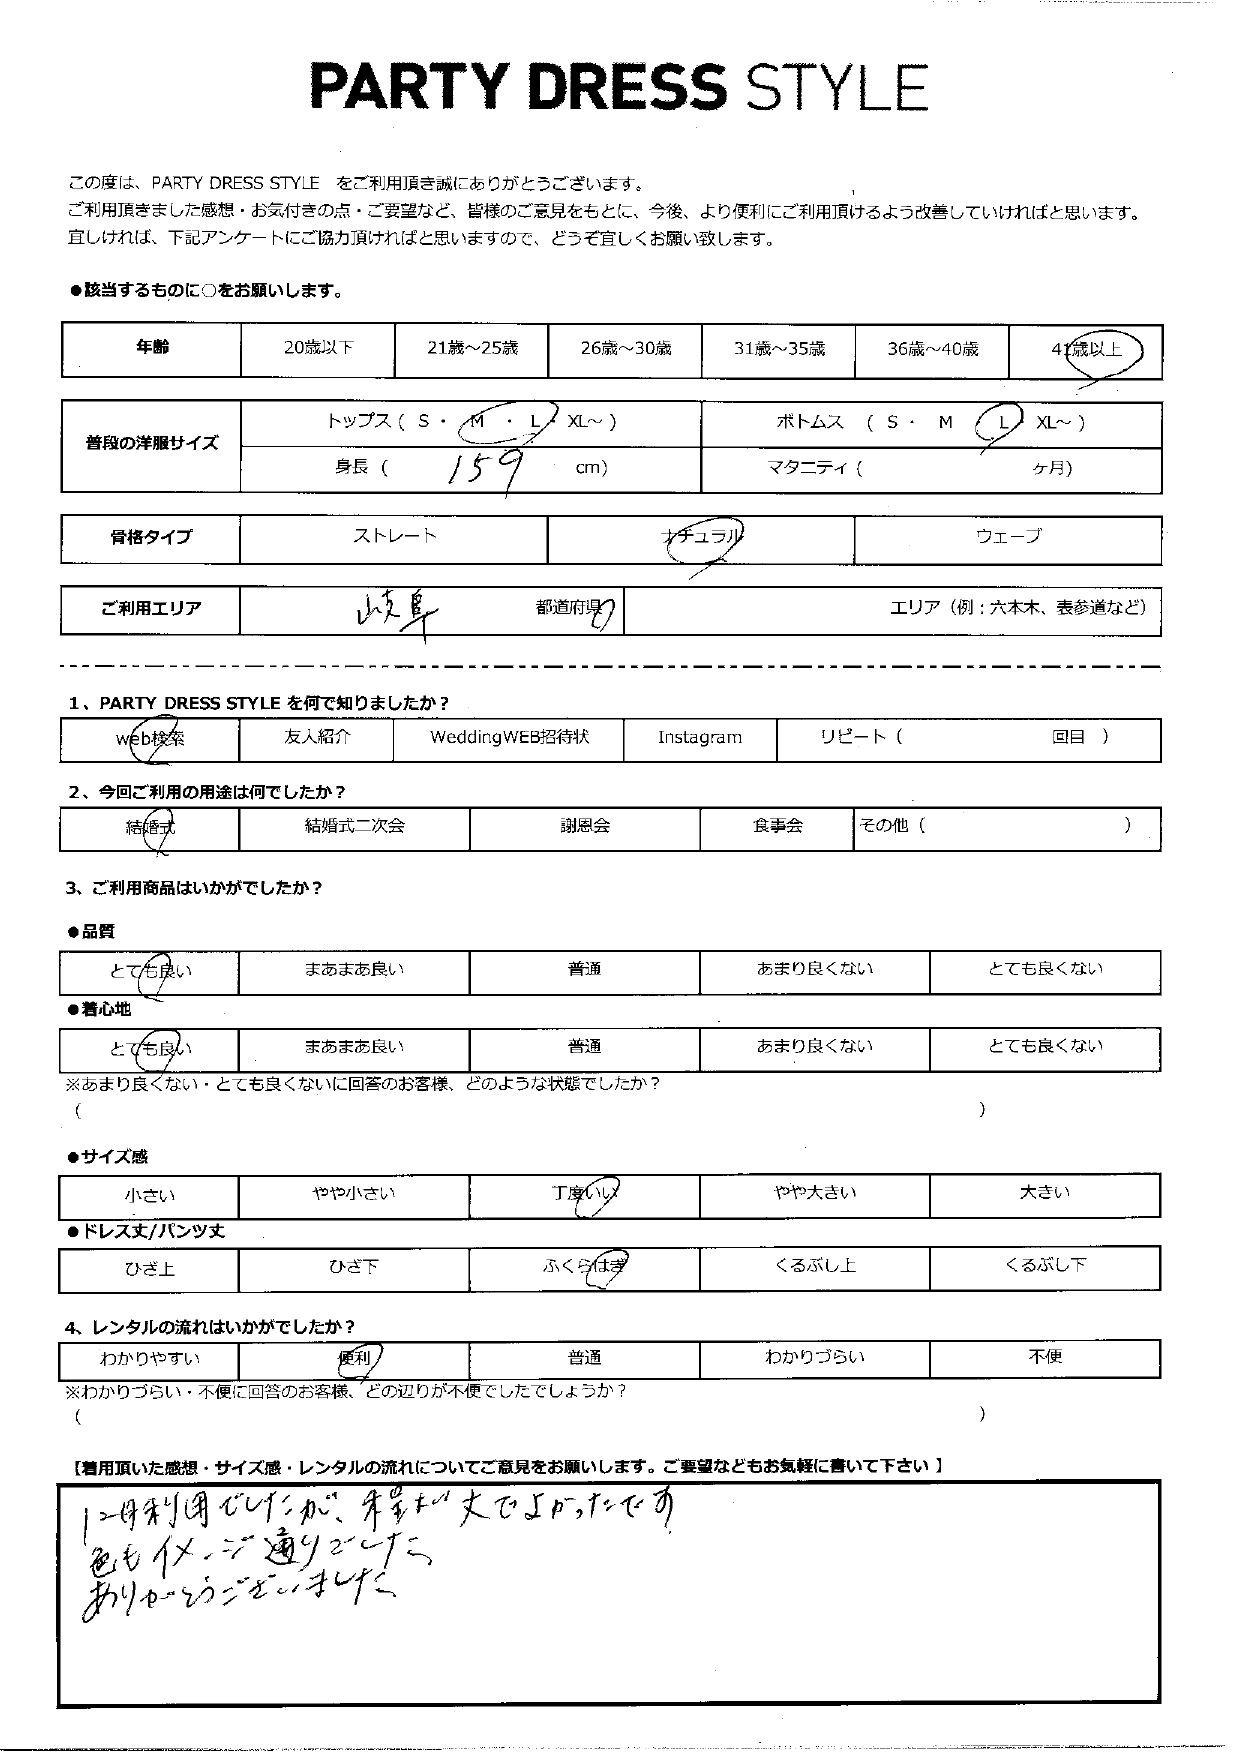 PARTY DRESS STYLE
この度は、PARTY DRESS STYLE をご利用頂き誠にありがとうございます。
ご利用頂きました感想・お気付きの点・ご要望など、皆様のご意見をもとに、今後、より便利にご利用頂けるよう改善していければと思います。
宜しければ、下記アンケートにご協力頂ければと思いますので、どうぞ宜しくお願い致します。
●該当するものに○をお願いします。
年齢 20歳以下 21歳～25歳 26歳～30歳 31歳～35歳 36歳～40歳 41歳以上
普段の洋服サイズ
トップス ( S ・ M ・ L ・ XL～ ) ボトムス ( S ・ M ・ L ・ XL～ )
身長 ( 159 cm) マタニティ ( ヶ月)
骨格タイプ ストレート ナチュラル ウェーブ
ご利用エリア 岐阜 都道府県 エリア（例：六本木、表参道など）
1、PARTY DRESS STYLE を何で知りましたか？
web検索 友人紹介 WeddingWEB招待状 Instagram リピート ( 回目 )
2、今回ご利用の用途は何でしたか？
結婚式 結婚式二次会 謝恩会 食事会 その他 ( )
3、ご利用商品はいかがでしたか？
●品質
とても良い まあまあ良い 普通 あまり良くない とても良くない
●着心地
とても良い まあまあ良い 普通 あまり良くない とても良くない
※あまり良くない・とても良くないに回答のお客様、どのような状態でしたか？
( )
●サイズ感
小さい やや小さい 丁度いい やや大きい 大きい
●ドレス丈/パンツ丈
ひざ上 ひざ下 ふくらはぎ くるぶし上 くるぶし下
4、レンタルの流れはいかがでしたか？
わかりやすい 便利 普通 わかりづらい 不便
※わかりづらい・不便に回答のお客様、どの辺りが不便でしたでしょうか？
( )
【着用頂いた感想・サイズ感・レンタルの流れについてご意見をお願いします。ご要望などもお気軽に書いて下さい 】
12月利用でしたが、 丈でよかったです
色もイメージ通りでした
ありがとうございました